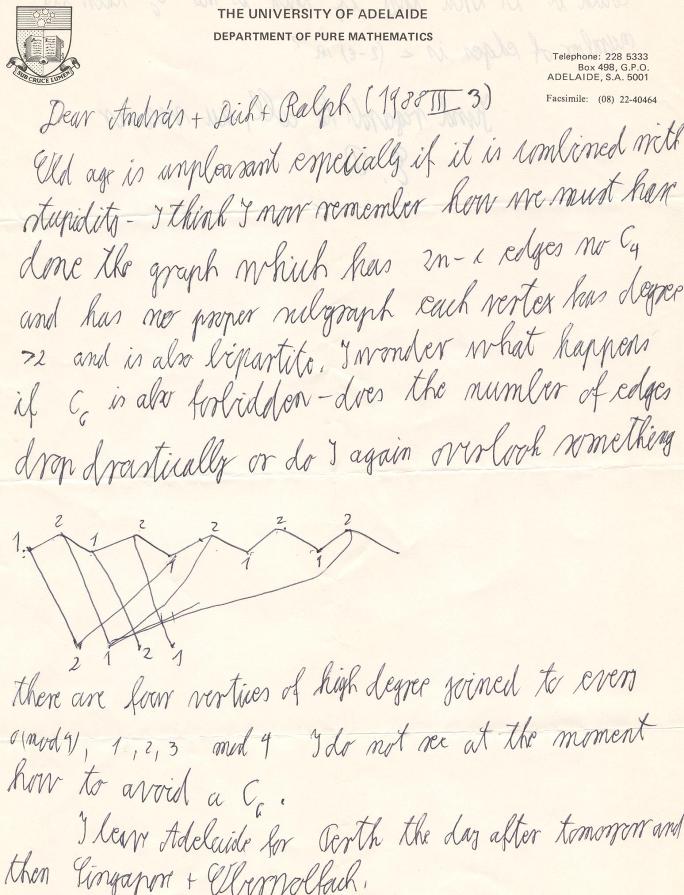 THE UNIVERSITY OF ADELAIDE
DEPARTMENT OF PURE MATHEMATICS
SUB CRUCE LUMEN
Telephone: 228 5333
Box 498, G.P.O.
ADELAIDE, S.A. 5001
Facsimile: (08) 22-40464
Dear András + Dick + Ralph (1988 III 3)
Old age is unpleasant especially if it is combined with
stupidity - I think I now remember how we must have
done the graph which has 2n - c edges no C4
and has no proper subgraph each vertex has degree
>2 and is also bipartite. I wonder what happens
if C6 is also forbidden - does the number of edges
drop drastically or do I again overlook something
1 2 1 2 1 2 1 2 1 2
2 1 2 1
there are four vertices of high degree joined to every
0(mod 4), 1, 2, 3 mod 4 I do not see at the moment
how to avoid a C6.
I leave Adelaide for Perth the day after tomorrow and
then Singapore + Oberwolfach.